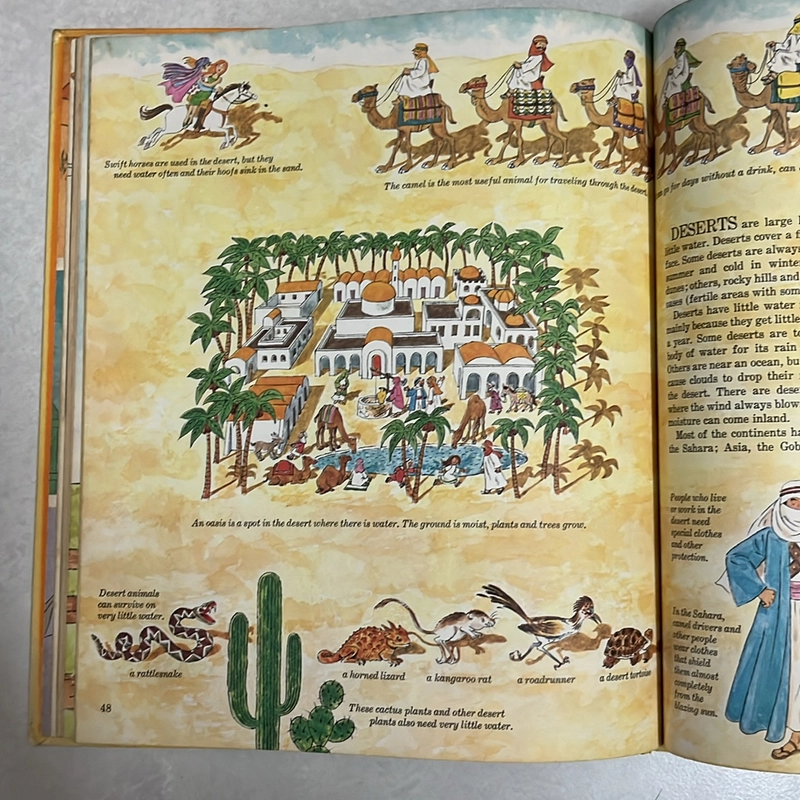 Swift horses are used in the desert, but they
need water often and their hoofs sink in the sand.
The camel is the most useful animal for traveling through the desert.
An oasis is a spot in the desert where there is water. The ground is moist, plants and trees grow.
Desert animals
can survive on
very little water.
a rattlesnake
a horned lizard
a kangaroo rat
a roadrunner
a desert tortoise
These cactus plants and other desert
plants also need very little water.
48
go for days without a drink, can
DESERTS are large
little water. Deserts cover a
face. Some deserts are always
summer and cold in winter
dunes; others, rocky hills and
oases (fertile areas with som
Deserts have little water
mainly because they get little
a year. Some deserts are to
body of water for its rain
Others are near an ocean, bu
cause clouds to drop their
the desert. There are dese
where the wind always blow
moisture can come inland.
Most of the continents ha
the Sahara; Asia, the Gob
People who live
or work in the
desert need
special clothes
and other
protection.
In the Sahara,
camel drivers and
other people
wear clothes
that shield
them almost
completely
from the
blazing sun.